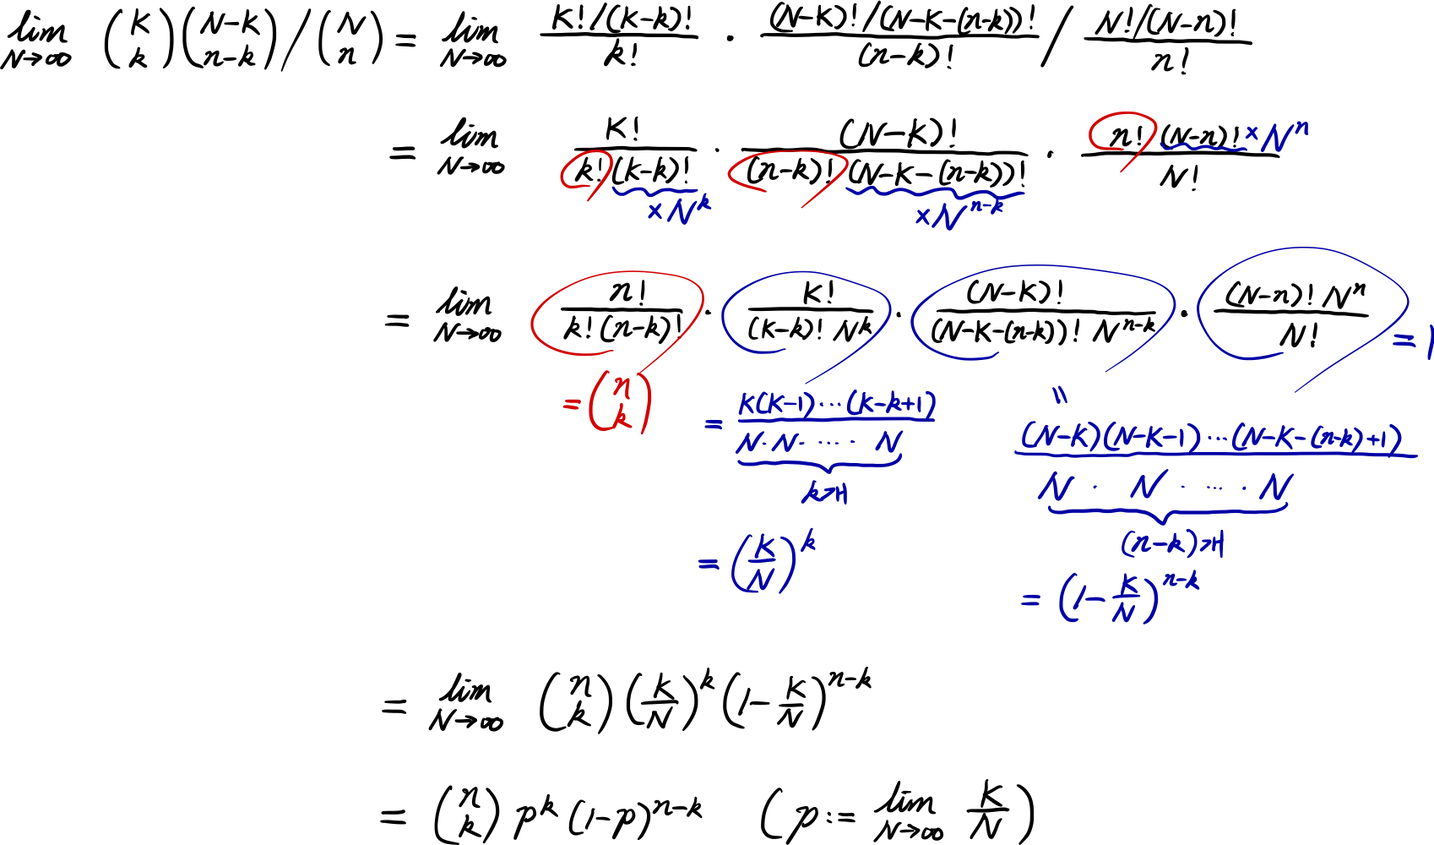 lim N→∞ (K k)(N-K n-k)/(N n) = lim N→∞ K!/(K-k)! / k! · (N-K)!/(N-K-(n-k))! / (n-k)! / N!/(N-n)! / n!
= lim N→∞ K! / k!(K-k)! · (N-K)! / (n-k)!(N-K-(n-k))! · n!(N-n)! × Nⁿ / N!
× Nᵏ × Nⁿ⁻ᵏ
= lim N→∞ n! / k!(n-k)! · K! / (K-k)! Nᵏ · (N-K)! / (N-K-(n-k))! Nⁿ⁻ᵏ · (N-n)! Nⁿ / N! = 1
= (n k) = K(K-1)···(K-k+1) / N·N· ···· N = (N-K)(N-K-1)···(N-K-(n-k)+1) / N · N · ··· · N
kコ (n-k)コ
= (K/N)ᵏ = (1-K/N)ⁿ⁻ᵏ
= lim N→∞ (n k) (K/N)ᵏ (1-K/N)ⁿ⁻ᵏ
= (n k) pᵏ (1-p)ⁿ⁻ᵏ (p := lim N→∞ K/N)